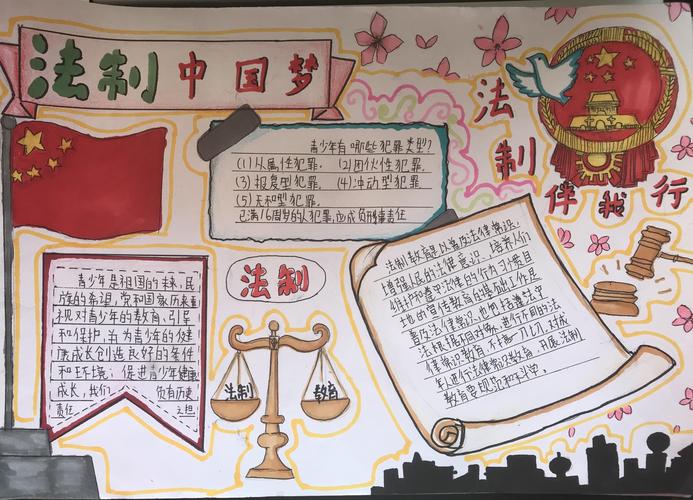 法制中国梦
法制
伴我行
青少年有哪些犯罪类型?
(1)从属性犯罪. (2)团伙性犯罪.
(3)报复型犯罪. (4)冲动型犯罪
(5)无知型犯罪.
已满16周岁的人犯罪,应成负刑事责任
青少年是祖国的未来,民
族的希望,党和国家历来重
视对青少年的教育、引导
和保护,并为青少年的健
康成长创造良好的条件
和环境;促进青少年健康
成长,我们 负有历史
责任 之担
法制
法制
教育
法制教育是以普及法律常识,
增强人民的法律意识,培养人们
维护和遵守法律的行为习惯目
地的宣传教育的基础工作是
普及法律常识,也把抽象法中
法根据不同对象,进行不同的法
律常识教育,
年,进行法律常识教育,开展法制
教育要规范和科学。